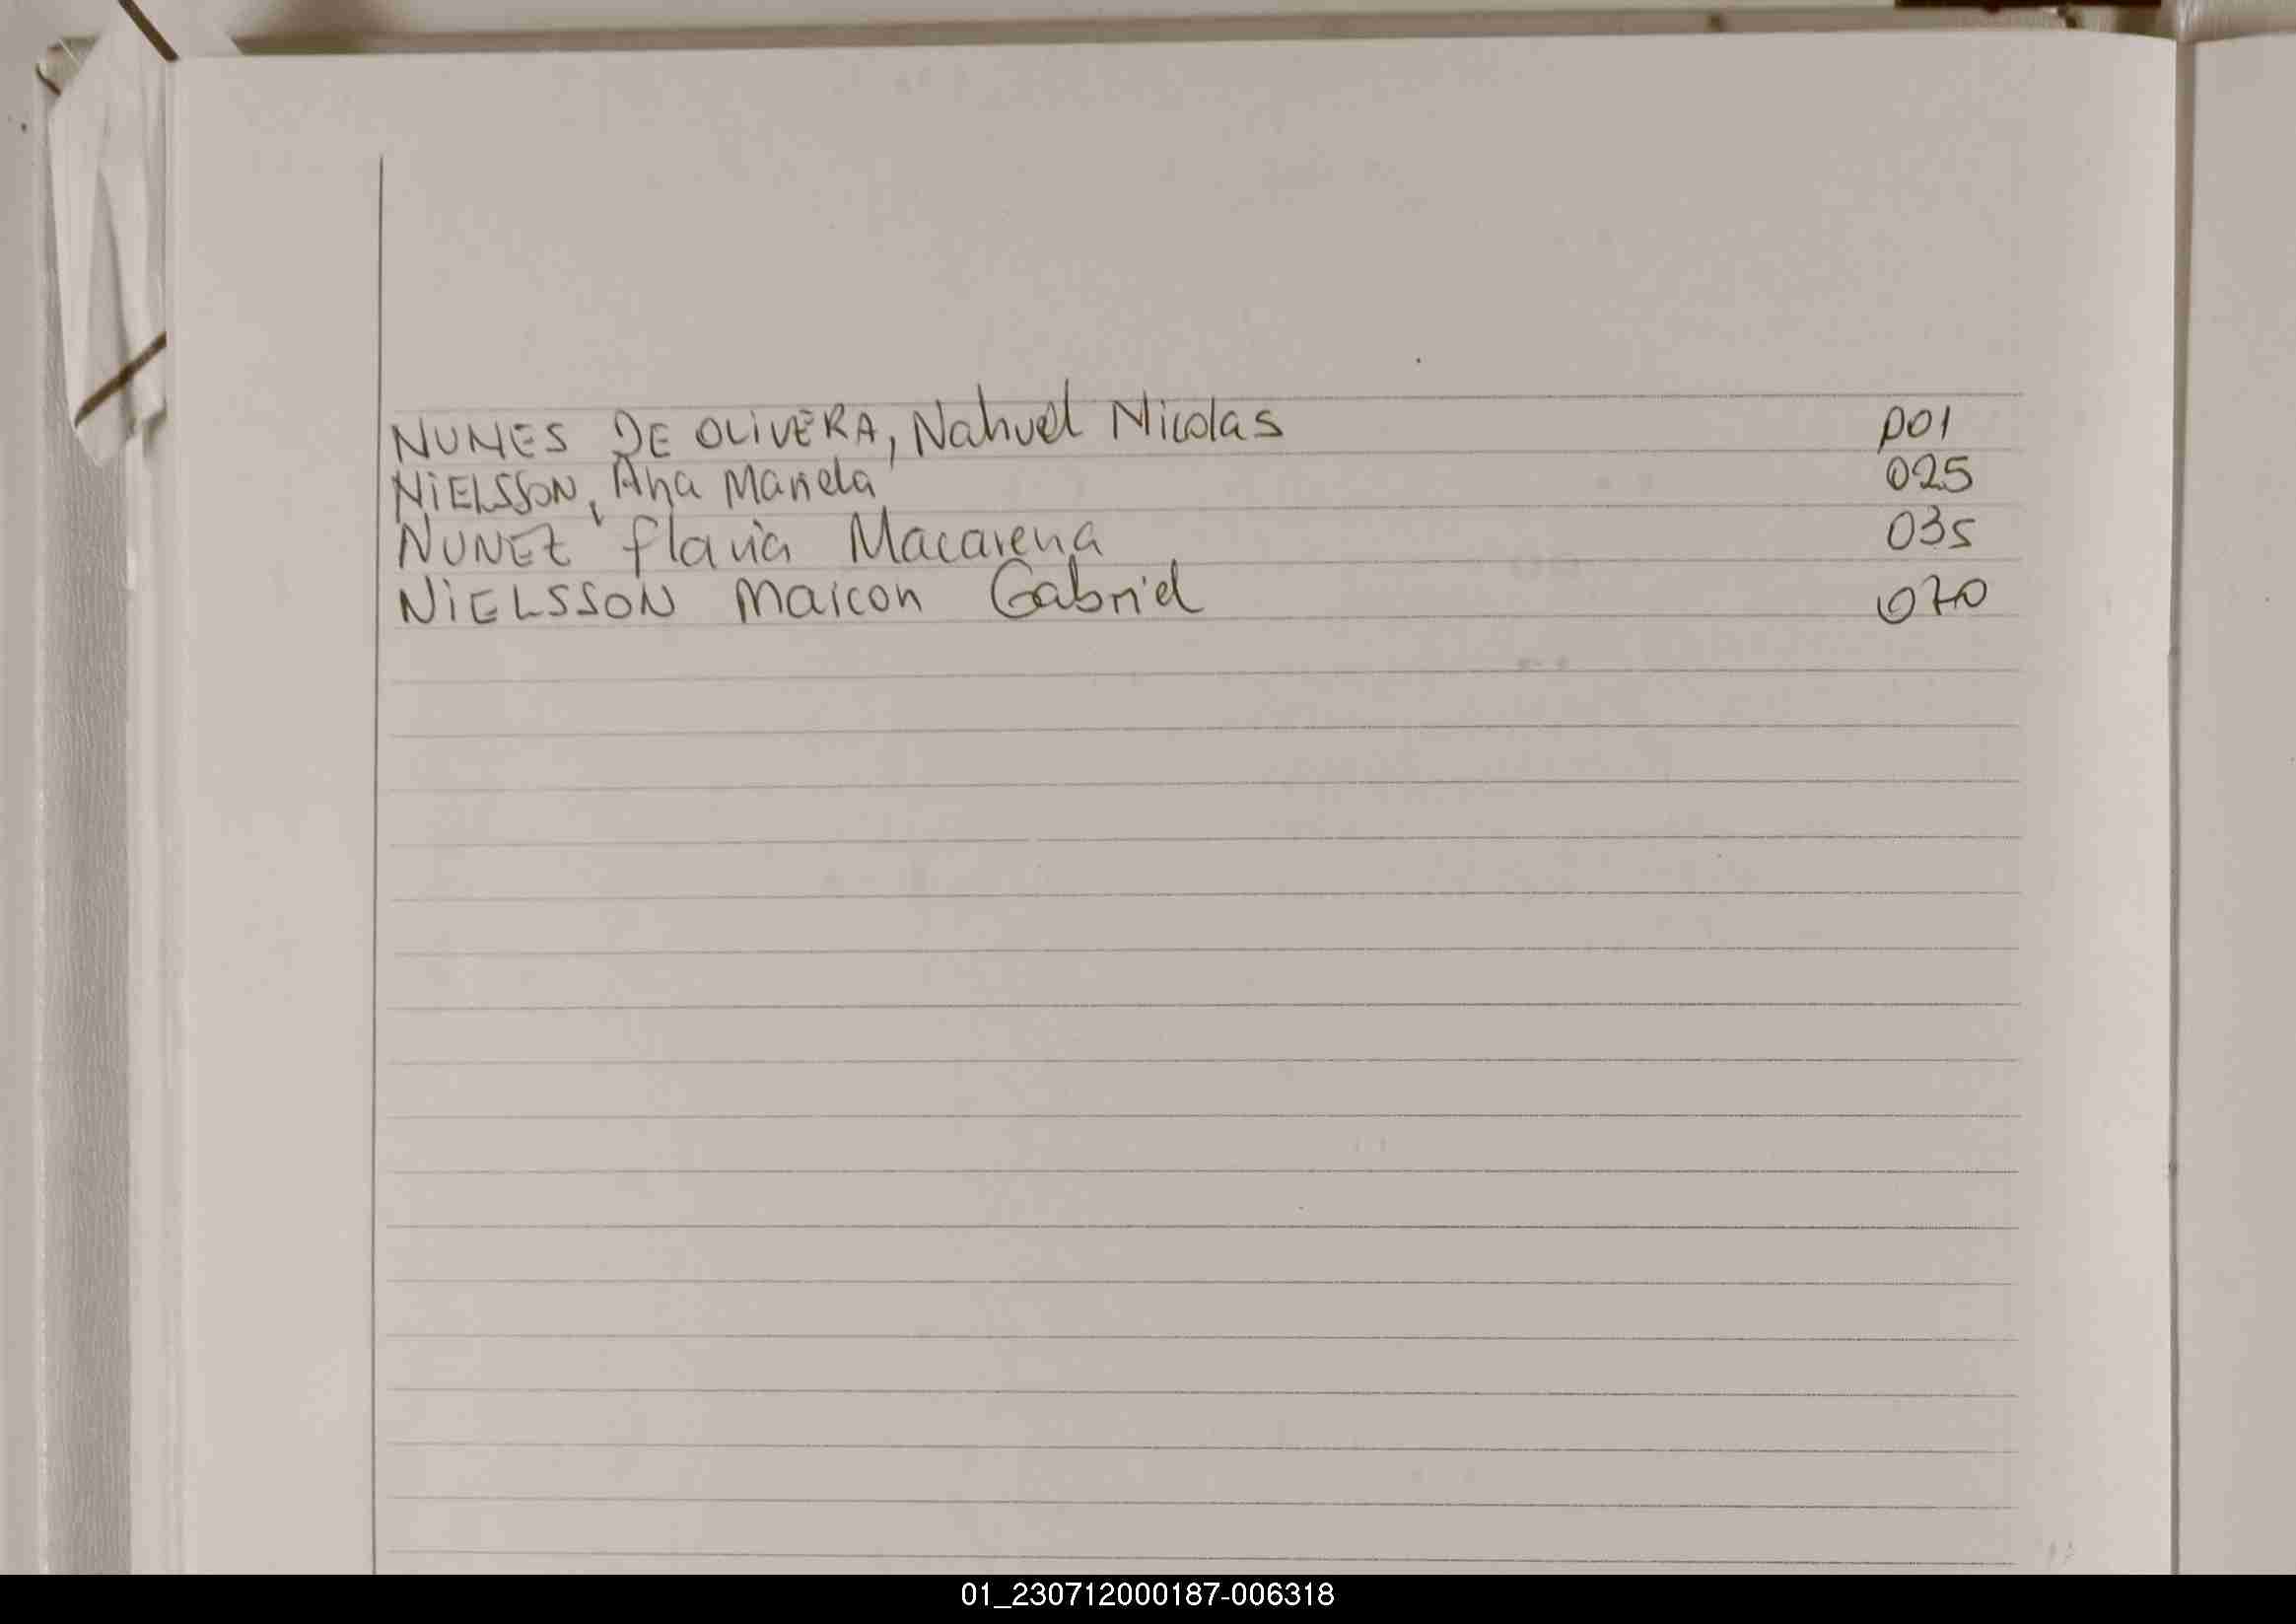 NUNES DE OLIVERA, Nahuel Nicolas 001
NIELSSON, Ana Mariela 025
NUNEZ Flavia Macarena 035
NIELSSON Maicon Gabriel 070
01_230712000187-006318